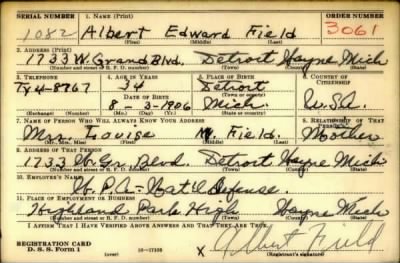 SERIAL NUMBER 1. NAME (Print) ORDER NUMBER
1082 Albert Edward Field 3061
(First) (Middle) (Last)
2. ADDRESS (Print)
1733 W. Grand Blvd. Detroit Wayne Mich
(Number and street or R. F. D. number) (Town) (County) (State)
3. TELEPHONE 4. AGE IN YEARS 5. PLACE OF BIRTH 6. COUNTRY OF CITIZENSHIP
Ty 4-8767 34 Detroit
DATE OF BIRTH
8-3-1906 Mich. U.S.A.
(Exchange) (Number) (Mo.) (Day) (Yr.) (State or country)
7. NAME OF PERSON WHO WILL ALWAYS KNOW YOUR ADDRESS 8. RELATIONSHIP OF THAT PERSON
Mrs. Louise M. Field. Mother
(Mr., Mrs., Miss) (First) (Middle) (Last)
9. ADDRESS OF THAT PERSON
1733 W. Gr. Blvd. Detroit Wayne Mich
(Number and street or R. F. D. number) (Town) (County) (State)
10. EMPLOYER'S NAME
W.P.A. - Nat'l Defense.
11. PLACE OF EMPLOYMENT OR BUSINESS
Highland Park High Wayne Mich
(Number and street or R. F. D. number) (Town) (County) (State)
I AFFIRM THAT I HAVE VERIFIED ABOVE ANSWERS AND THAT THEY ARE TRUE.
REGISTRATION CARD
D. S. S. Form 1 (over) X Albert Field
(Registrant's signature)